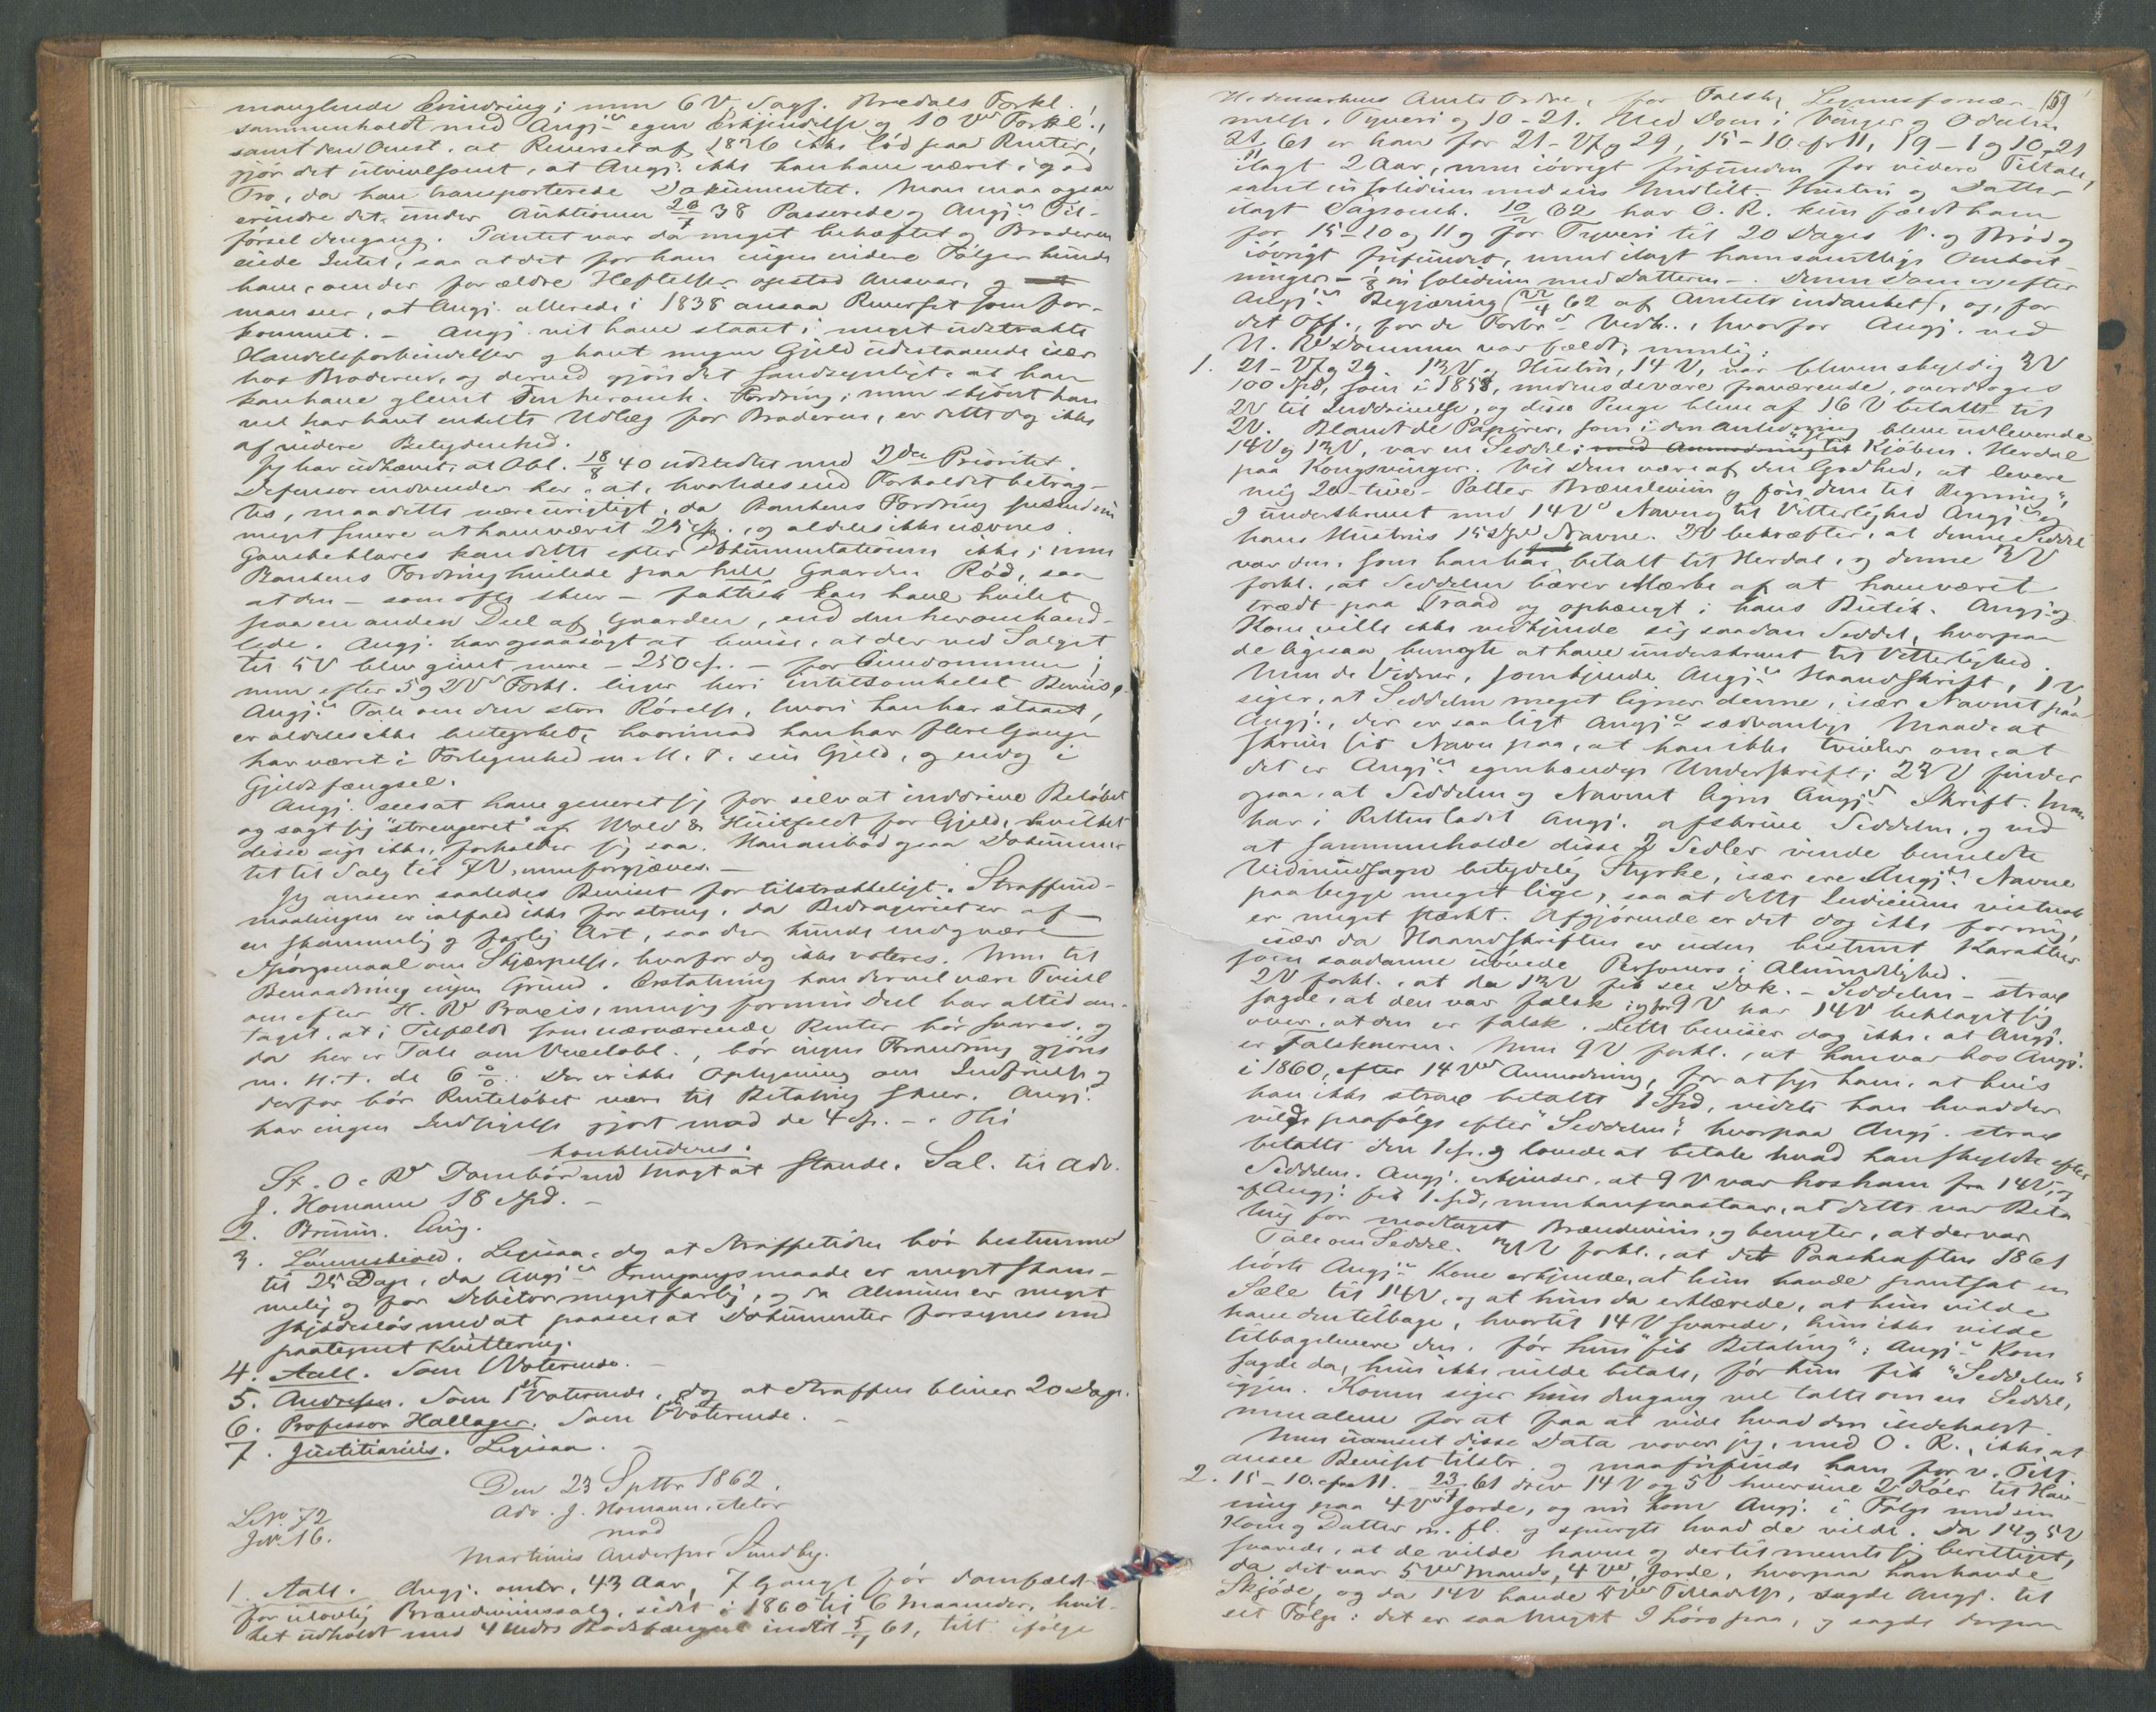 manglende Erindring; men 6 V, Sagf. Bredals Forkl.,
sammenholdt med Angjs egen Erkjendelse og 10 Vs Forkl.,
samt den Omst. at Reverset af 1836 ikke lød paa Renter,
gjør det utvivlsomt, at Angj. ikke kan have været i god
Tro, da han transporterede Dokumentet. Man maa ogsaa
erindre det under Auktionen 26/1 38 Passerede og Angjs Til-
førsel dengang. Pantet var da meget behæftet og Broderen
eiede Intet, saa at det for ham ingen videre Følger kunde
have, om der for ældre Heftelser opstod Ansvar, og
man seer, at Angj. allerede i 1838 ansaa Reverset som for-
kommet. – Angj. vil have staaet i meget udstrakte
Handelsforbindelser og havt megen Gjeld udestaaende især
hos Broderen, og derved gjøre det sandsynligt, at han
kan have glemt den heromh. Fordring; men skjønt han
vel har havt enkelte Udlæg for Broderen, er dette dog ikke
af videre Betydenhed.
Jeg har udhævet, at Obl. 18/8 40 udstedtes med 2den Prioritet.
Defensor indvender her, at, hvorledes end Forholdet betrag-
tes, maa dette være urigtigt, da Bankens Fordring
meget senere at have været 25 Sp., og aldeles ikke nævnes.
Ganske klares kan dette efter Dokumentationen ikke; men
Bankens Fordring hvilede paa hele Gaarden Rød, saa
at den – som ofte skeer – faktisk kan have hvilet
paa en anden Deel af Gaarden, end den heromhand-
lede. Angj. har ogsaa søgt at bevise, at der ved Salget
til 5 V blev givet mere – 250 Sp. – for Eiendommen;
men efter 5 og 2 Vs Forkl. ligger heri intetsomhelst Beviis.
Angjs Tale om den store Rørelse, hvori han har staaet,
er aldeles ikke bestyrket, hvorimod han har flere Gange
har været i Forlegenhed m. H. t. sin Gjeld, og endog i
Gjeldsfængsel.
Angj. sees at have generet sig for selv at inddrive Beløbet
og sagt sig "strengeret" af Wold & Huitfeldt for Gjeld, hvilket
disse sige ikke forholder sig saa. Han anbød ogsaa Dokumen-
tet til Salg til 7 V, men forgjæves. –
Jeg ansees saaledes Beviset for tilstrækkeligt. Straffeud-
maalingen er ialfald ikke for streng, da Bedrageriet er af
en skammelig og farlig Art, saa der kunde endog være
Spørgsmaal om Skjærpelse, hvorfor dog ikke voteres. Men til
Benaadning ingen Grund. Erstatning kan der vel være Tvivl
om efter H. Rs Praxis, men jeg for min Deel har altid an-
taget, at i Tilfælde som nærværende Renter bør svares, og
da her er Tale om Vexelobl., bør ingen Forandring gjøres
m. H. t. de 6 %. Der er ikke Oplysning om Indfrielse og
derfor bør Renteløbet være til Betaling skeer. Angj.
har ingen Indsigelse gjort mod de 4 Sp. – . Thi
konkluderes:
St. O. Rs Dom bør ved Magt at stande. Sal. til Adv.
J. Homann 18 Spd. –
2. Bruun. Enig.
3. Løvenskiold. Ligesaa, dog at Straffetiden bør bestemmes
til 25 Dage, da Angjs Fremgangsmaade er meget skam-
melig og for Debitor meget farlig, og da Almuen er meget
skjødesløs med at paasee, at Dokumenter forsynes med
paategnet Kvittering.
4. Aall. Som 1 Voterende. –
5. Andresen. Som 1ste Voterende, dog at Straffen bliver 20 Dage.
6. Professor Hallager. Som 1ste Voterende. –
7. Justitiarius. Ligesaa. –
Den 23 Septbr 1862.
L.No 72
J.No 16.
Adv. J. Homann, Actor
mod
Martinus Andersen Sundby.
1. Aall. Angj. omtr. 43 Aar, 7 Gange før domfældt
for ulovlig Brændeviinssalg, sidst i 1860 til 6 Maaneder, hvil-
ket udholdt med 4 Uedrs Bodsfængsel indtil 5/7 61, tilt. ifølge
Hedemarkens Amts Ordre, for Falsk, Legemsfornær- 159
melse, Tyveri og 10-21. Ved Dom i Vinger og Odalen
21/11 61 er han for 21-27 og 29, 15-10 cfr 11, 19-1 og 10-21
ilagt 2 Aar, men iøvrigt frifunden for videre Tiltale,
samt in solidum med sin Medtilt. Hustru og Datter
ilagt Sagsomk. 10/2 62 har O. R. kun fældt ham
for 15-10 og 11 og for Tyveri til 20 Dages V. og Brød og
iøvrigt frifundet, men ilagt ham samtlige Omkost-
ninger – in solidum med Datteren –. Denne Dom er efter
Angjs Begjæring 22/4 62 af Amtet indanket, og, for
det Off., for de Forbrs Vedk., hvorfor Angj. ved
U. Rs Dommen var fældt, nemlig:
1. 21-27 og 29. 13 V og Hustru, 14 V, var bleven skyldig 3 V
100 Spd, som i 1858, medens de vare fraværende, overdroges
2 V til Inddrivelse, og disse Penge bleve af 16 V betalte til
2 V. Blandt de Papirer, som i den Anledning bleve udleverede
14 V og 13 V, var en Seddel: Kjøbm. Herdal
paa Kongsvinger. Vil Dem være af den Godhed, at levere
mig 20-tive- Potter Brændeviin og før dem til Regning",
og underskrevet med 14 Vs Navn og til Vitterlighed Angjs og
hans Hustrus 15 Vs Navne. 3 V bekræfter, at denne Seddel
var den, som han har betalt til Herdal, og denne 3 V
forkl., at Seddelen bærer Mærke af at have været
trædt paa Traad og ophængt i hans Butik. Angj. og
Kone ville ikke vedkjende sig saadan Seddel, hvorpaa
de ligesaa benægte at have underskrevet til Vitterlighed.
Men de Vidner, som kjende Angjs Haandskrift, 1 V,
siger, at Seddelen meget ligner denne, især Navnet paa
Angj., der er saa ligt Angjs sædvanlige Maade at
skrive sit Navn paa, at han ikke tvivler om, at
det er Angjs egenhændige Underskrift; 23 V finder
ogsaa, at Seddelen og Navnet ligne Angjs Skrift. Man
har i Retten ladet Angj. afskrive Seddelen, og ved
at sammenholde disse 2 Sedler vinde bemeldte
Vidneudsagn betydelig Styrke, især ere Angjs Navne
paa begge meget lige, saa at dette Indicium vistnok
er meget stærkt. Afgjørende er det dog ikke for mig,
især da Haandskriften er uden bestemt Karakter
som saadanne uøvede Personers i Almindelighed.
2 V forkl., at da 13 V fik see Dok. – Seddelen – strax
sagde, at den var falsk; og for 9 V har 14 V beklaget sig
over, at den er falsk. Dette beviser dog ikke, at Angj.
er Falskneren. Men 9 V forkl., at han var hos Angj.
i 1860, efter 14 Vs Anmodning, for at sige ham, at hvis
han ikke strax betalte 1 Spd, vidste han hvad der
vilde paafølge efter "Seddelen", hvorpaa Angj. strax
betalte den 1 Sp. og lovede at betale hvad han skyldte efter
Seddelen. Angj. erkjender, at 9 V var hos ham fra 14 V, og
af Angj. fik 1 Spd, men han paastaar, at dette var Beta
ling for modtaget Brændeviin, og benægter, at der var
Tale om Seddel. V forkl., at det Paaskeaften 1861
hørte Angjs Kone erkjende, at hun havde pantsat en
Sæle til 14 V, og at hun da erklærede, at hun vilde
have den tilbage, hvortil 14 V svarede, hun ikke vilde
tilbagelevere den, før hun "fik Betaling"; Angjs Kone
sagde da, hun ikke vilde betale, før hun fik "Seddelen"
igjen. Konen siger hun dengang vel talte om en Seddel,
men alene for at faa at vide hvad den indeholdt.
Men uanseet disse Data vover jeg, med O. R., ikke at
ansee Beviset tilstr. og maa frifinde ham for v. Tilt.
2. 15-10 cfr 11. 23/ 61 drev 14 V og 5 V hver sine 2 Køer til Hav-
ning paa 4 Vs Jorde, og nu kom Angj. i Følge med sin
Kone og Datter m. fl. og spurgte hvad de vilde. Da 14 og 5 V
svarede, at de vilde havne og dertil meente sig berettiget,
da det var 5 Vs Mands, 4 Vs, Jorde, hvorpaa han havde
Skjøde, og da 14 V havde 4 Vs Tilladelse, sagde Angj. til
sit Følge: det er saa meget I høre paa, og sagde derpaa